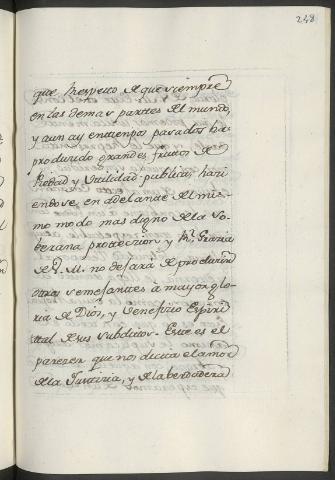 248
que respecto de que siempre
en las demas partes del mundo,
y aun ay en tienpos pasados ha
produzido grandes frutos de
Piedad y Utilidad publica, hazi
endose, en adelante del mis-
mo modo mas digno de la so-
berana protection, y Rl. Grazia
de V. M. no dejará de produzir
otros semejantes á mayor glo-
ria de Dios, y beneficio Espiri
tual de sus subditos. Este es el
parezer que nos dicta el amor
de la Justizia, y de la berdadera